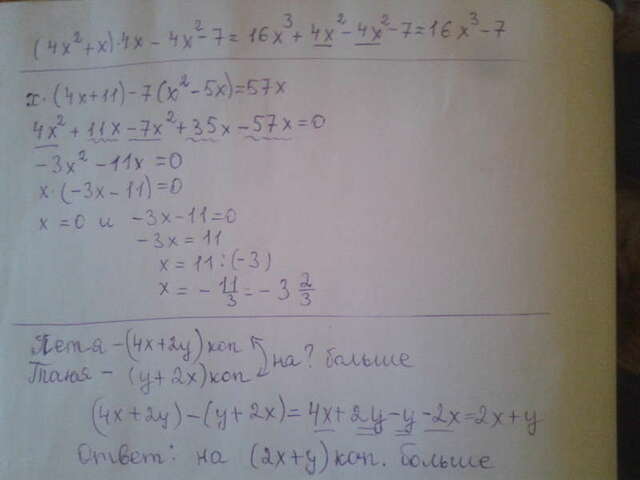 (4x²+x)·4x - 4x²-7 = 16x³ + 4x² - 4x² - 7 = 16x³ - 7
x·(4x+11) - 7(x²-5x) = 57x
4x² + 11x - 7x² + 35x - 57x = 0
-3x² - 11x = 0
x·(-3x-11) = 0
x = 0 и -3x-11 = 0
-3x = 11
x = 11:(-3)
x = - 11/3 = - 3 2/3
Петя - (4x+2y) коп
на? больше
Таня - (y+2x) коп
(4x+2y) - (y+2x) = 4x+2y-y-2x = 2x+y
Ответ: на (2x+y) коп. больше